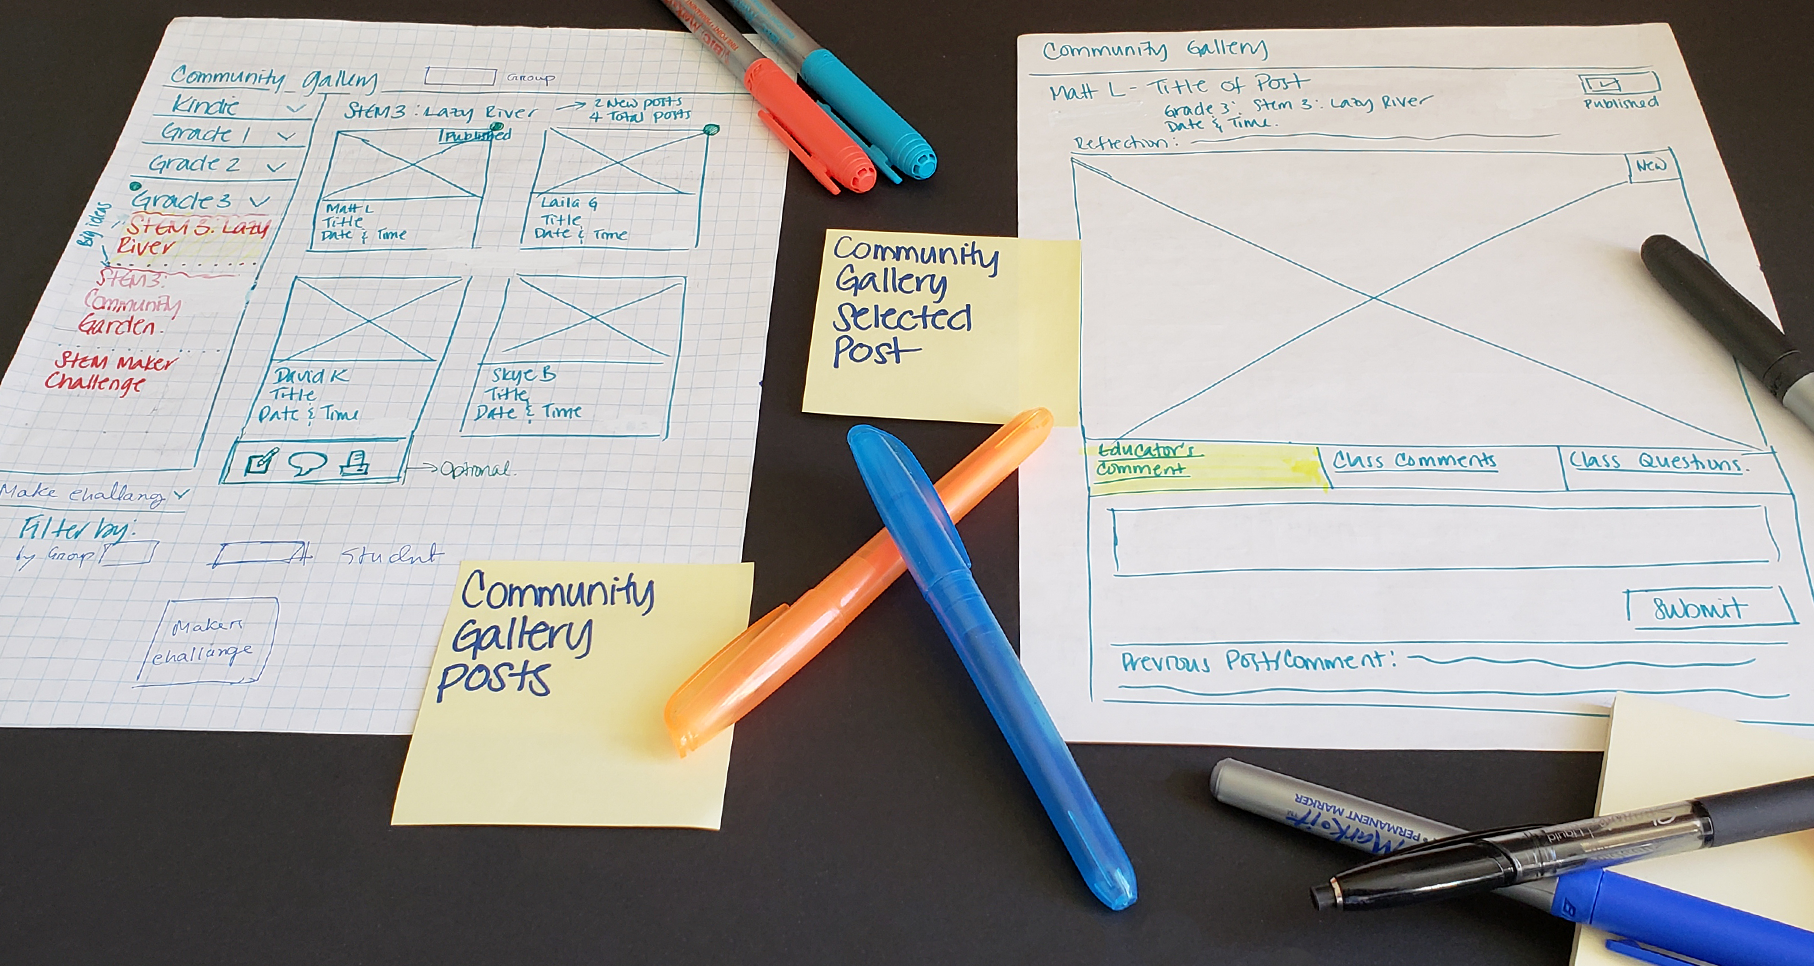 Community Gallery
Group
Kindie
Grade 1
Grade 2
Grade 3
Big ideas
STEM 3: Lazy
River
STEM 3:
Community
Garden.
STEM Maker
Challenge
STEM 3: Lazy River
2 New posts
4 Total posts
Published
Matt L
Title
Date & Time
Laila G
Title
Date & Time
David K
Title
Date & Time
Skye B
Title
Date & Time
Optional.
Make challang
Filter by:
by Group
Student
Makers
challange
Community
Gallery
posts
Community
Gallery
Selected
Post
Community Gallery
Matt L - Title of Post
Grade 3: Stem 3: Lazy River
Date & Time.
Published
Reflection:
New
Educator's
Comment
Class Comments
Class Questions.
Submit
Previous Post/Comment:
Markit
PERMANENT MARKER
Liquid
B